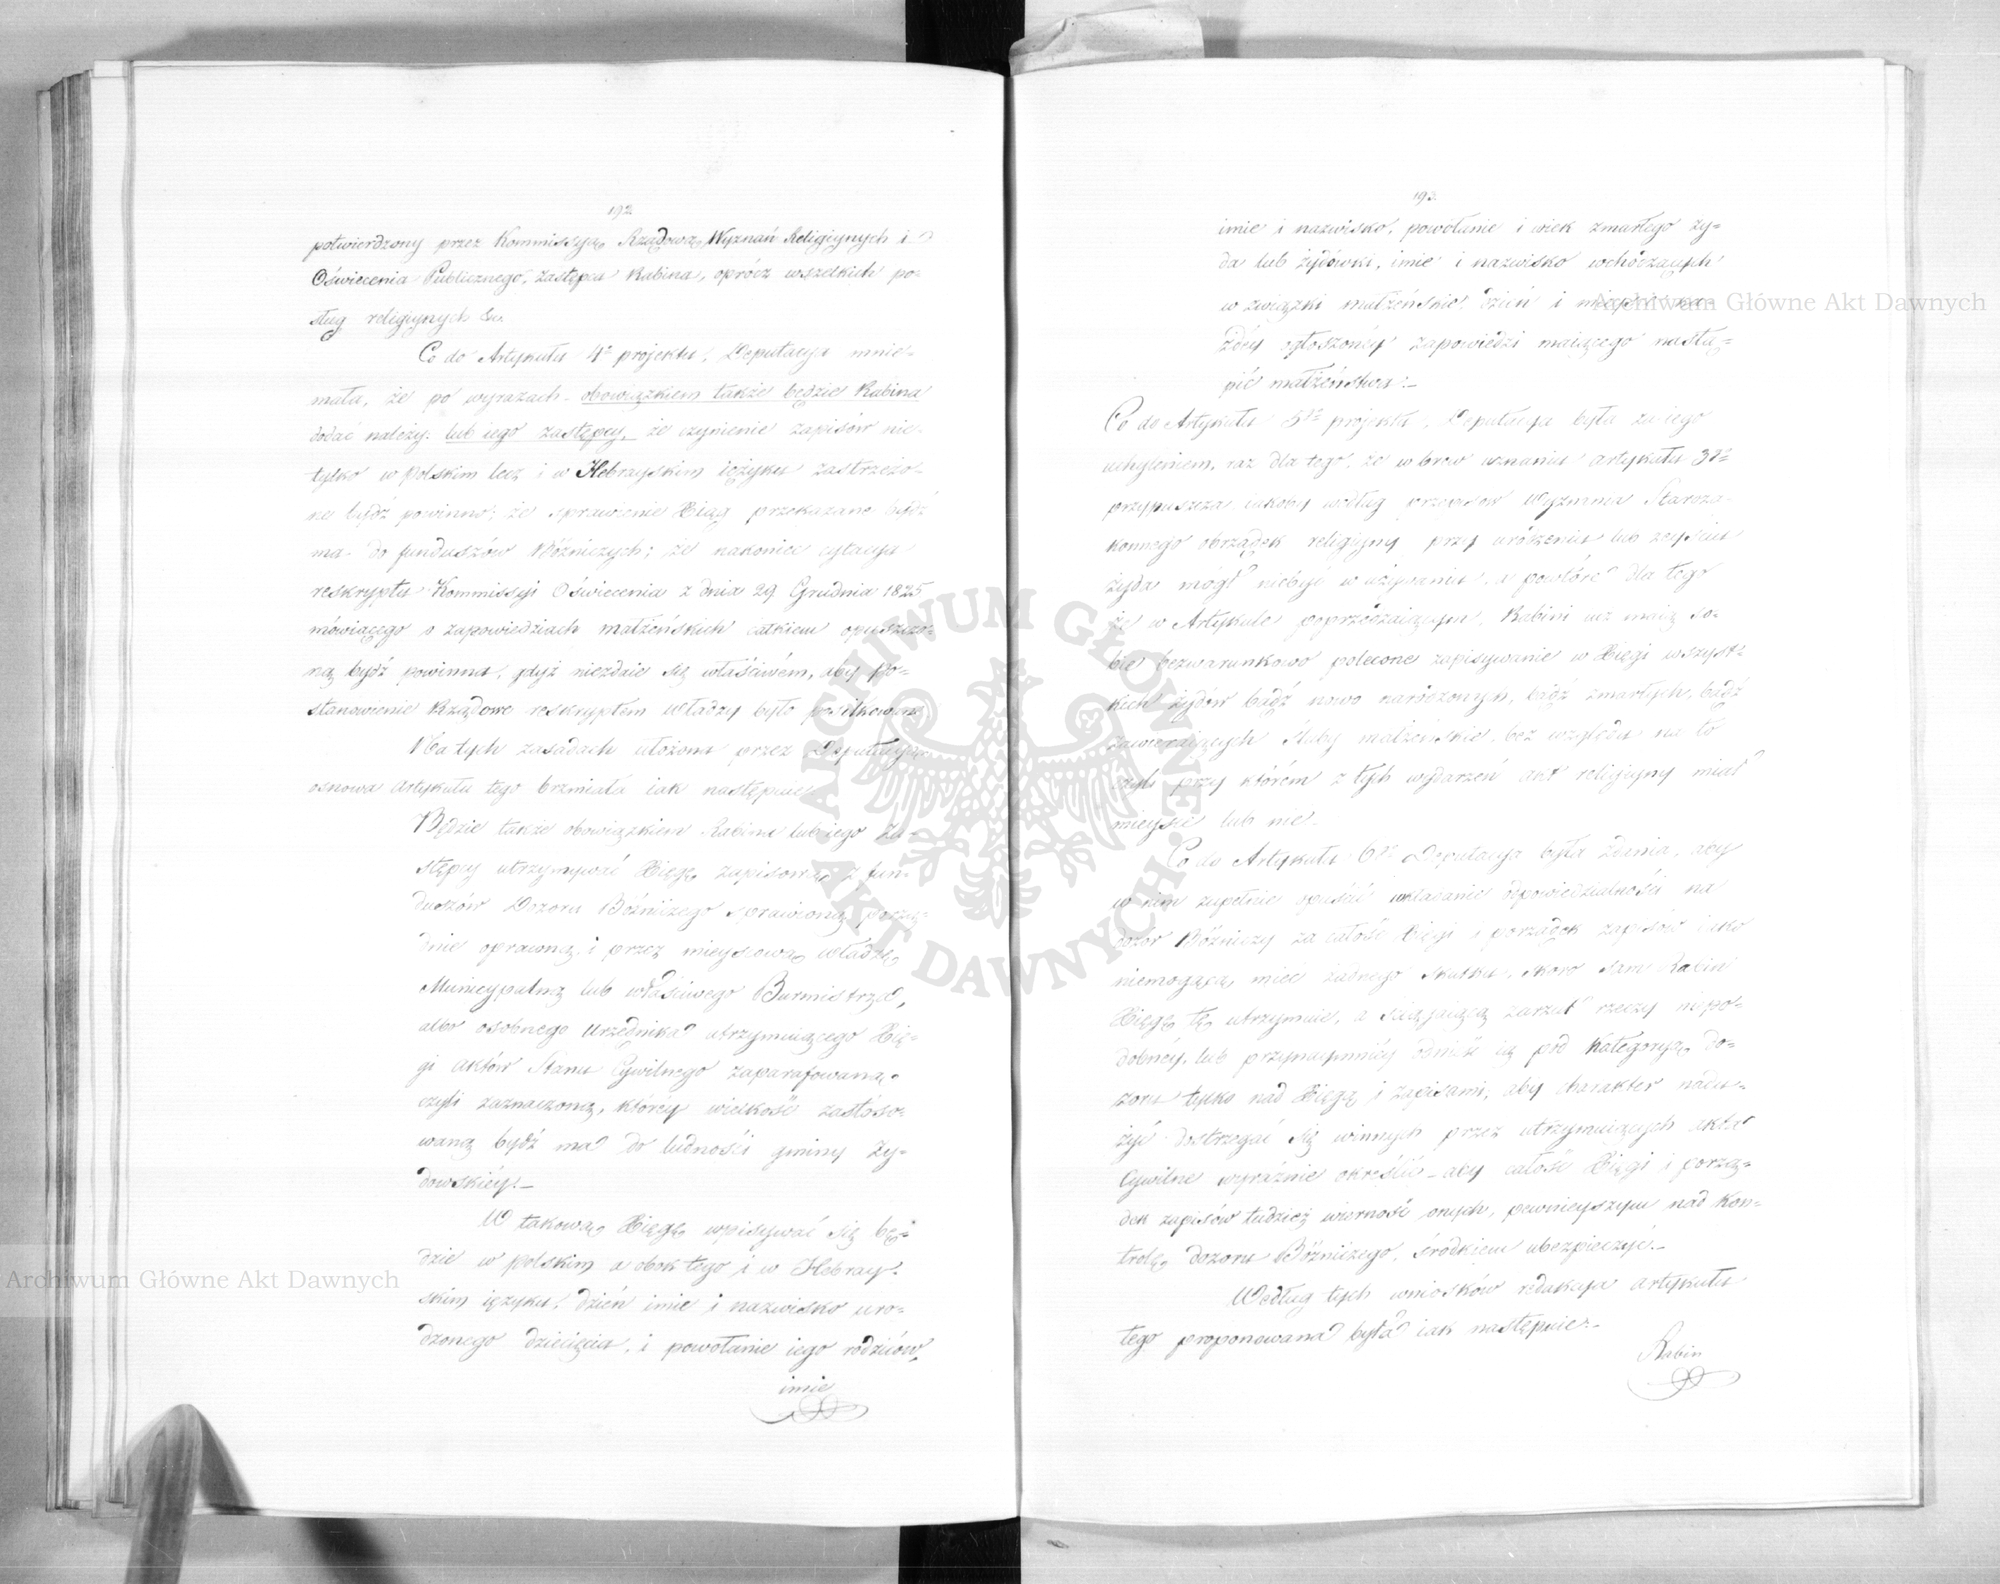 192
potwierdzony przez Kommissyję Rządową Wyznań Religijnych i
Oświecenia Publicznego, zastępca Rabina, oprócz wszelkich po-
sług religijnych &c.
Co do Artykułu 4º projektu, Deputacya mnie-
mała, że po wyrazach - obowiązkiem także będzie Rabina
dodać należy: lub iego zastępcy, że czynienie zapisów nie-
tylko w Polskim lecz i w Hebrayskim ięzyku zastrzeżo-
ne bydź powinno; że sprawienie Xiąg przekazane bydź
ma do funduszów Bóżniczych; że nakoniec cytacya
reskryptu Kommissyi Oświecenia z dnia 29 Grudnia 1825
mówiącego o zapowiedziach małżeńskich całkiem opuszczo-
ną bydź powinna, gdyż niezdaie się właściwém, aby Po-
stanowienie Rządowe reskryptem władzy było
Na tych zasadach ułożona przez Deputacyą
osnowa Artykułu tego brzmiała iak następuie
Będzie także obowiązkiem Rabina lub iego Za-
stępcy utrzymywać Xięgę zapisową z fun-
duszów Dozoru Bóżniczego sprawioną, porzą-
dnie oprawną, i przez mieyscową władzę
Municypalną lub właściwego Burmistrza,
albo osobnego Urzędnika utrzymuiącego Xię-
gi Aktów Stanu Cywilnego zaparafowaną
czyli zaznaczoną, któréy wielkość zastóso-
waną bydź ma do ludności gminy Ży-
dowskiéy.-
W takową Xięgę wpisywać się bę-
dzie w Polskim a obok tego i w Hebray-
skim ięzyku, dzień imie i nazwisko uro-
dzonego dziecięcia, i powołanie iego rodziców,
imie
193.
imie i nazwisko, powołanie i wiek zmarłego Ży-
da lub żydówki, imie i nazwisko wchodzących
w związki małżeńskie, dzień i mieysce ka-
żdéy ogłoszonéy zapowiedzi maiącego nastą-
pić małżeństwa.-
Co do Artykułu 5º projektu, Deputacya była za iego
uchyleniem, raz dla tego, że wbrew uznaniu Artykułu 3º
przypuszcza iakoby według przepisów Wyznania Staroza-
konnego obrządek religijny przy urodzeniu lub zeyściu
żyda mógł niebyć w używaniu, a powtóre dla tego
że w Artykule poprzedzaiącym, Rabini iuż maią so-
bie bezwarunkowo polecone zapisywanie w Xięgi wszyst-
kich żydów bądź nowo narodzonych, bądź zmarłych, bądź
zawieraiących śluby małżeńskie bez względu na to
czyli przy którém z tych wydarzeń akt religijny miał
mieysce lub nie.
Co do Artykułu 6º Deputacya była zdania, aby
w nim zupełnie opuścić wkładanie odpowiedzialności na
dozór Bóżniczy za całość Xięgi i porządek zapisów iako
niemogącą mieć żadnego skutku, skoro sam Rabin
Xięgę tę utrzymuie, a ściągaiącą zarzut rzeczy niepo-
dobnéy, lub przynaymniéy odnieść ią pod kategoryą do-
zoru tylko nad Xięgą i zapisami, aby charakter nadu-
żyć dostrzegać się winnych przez utrzymuiących akta
Cywilne wyraźnie określić - aby całość Xięgi i porzą-
dek zapisów tudzież wierność onych, pewnieyszym nad kon-
trolę dozoru Bóżniczego, środkiem ubezpieczyć.-
Według tych wniosków redakcya Artykułu
tego proponowana była iak następuie.-
Rabin
Archiwum Główne Akt Dawnych
Archiwum Główne Akt Dawnych
ARCHIWUM GŁÓWNE AKT DAWNYCH